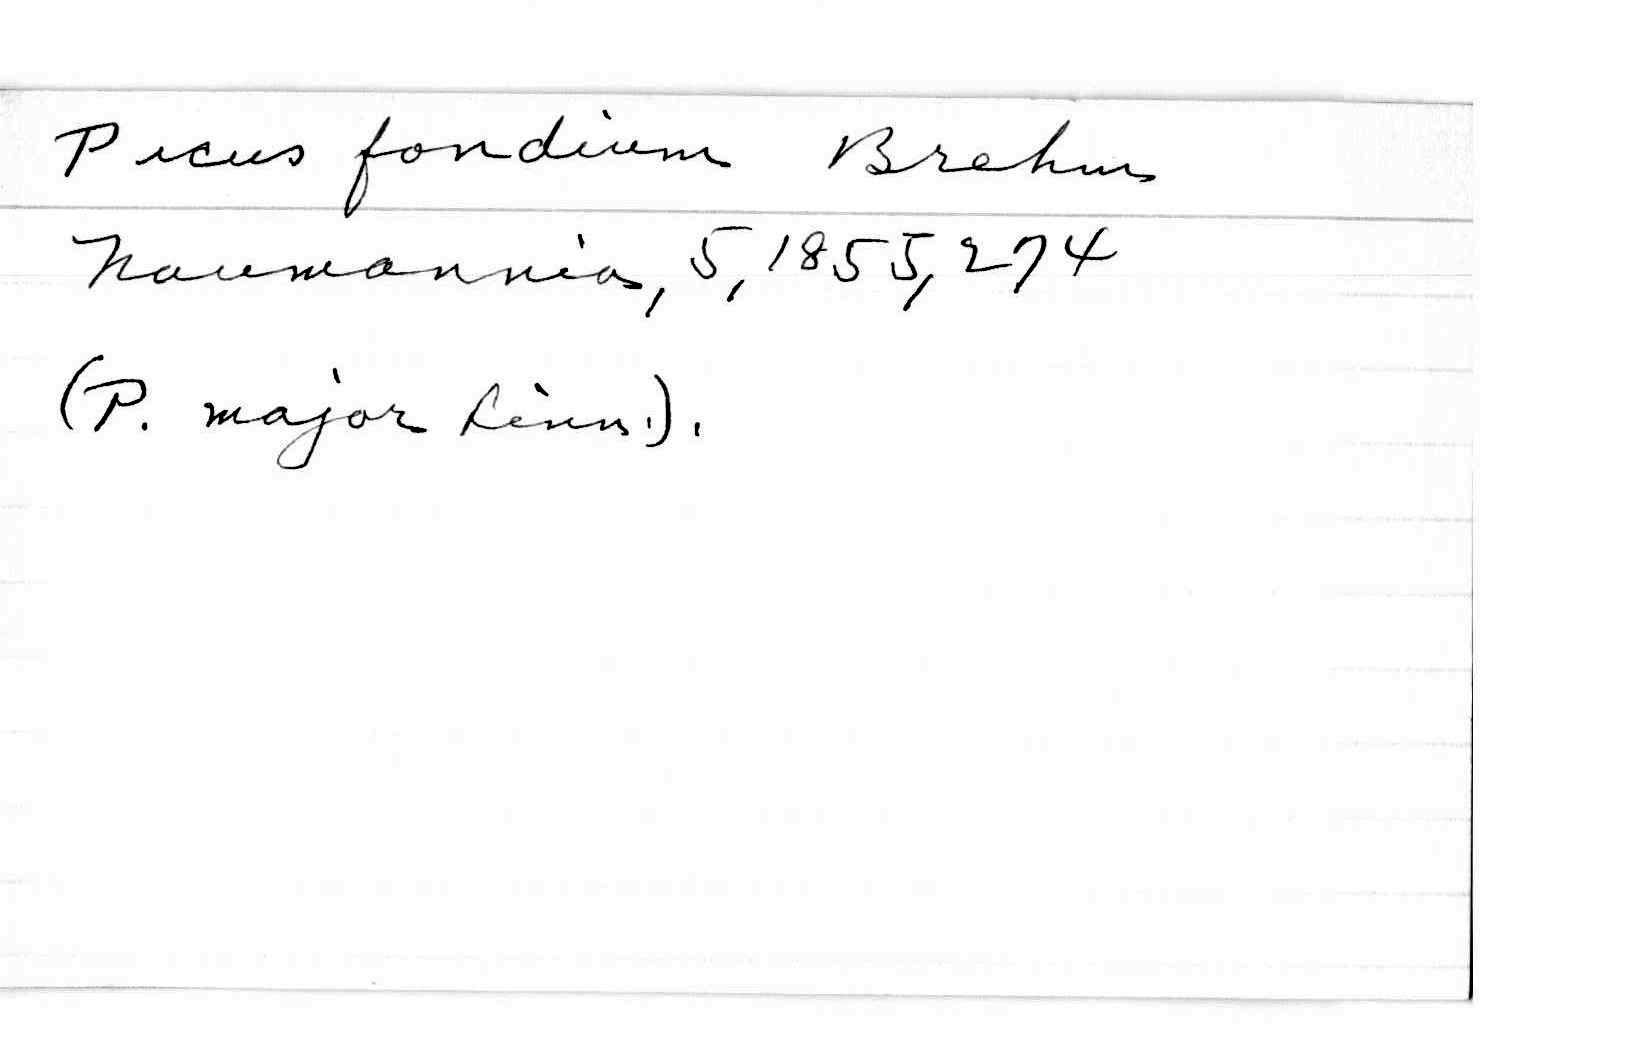 Picus fondium Brehm
Naumannia, 5, 1855, 274
(P. major Linn.).